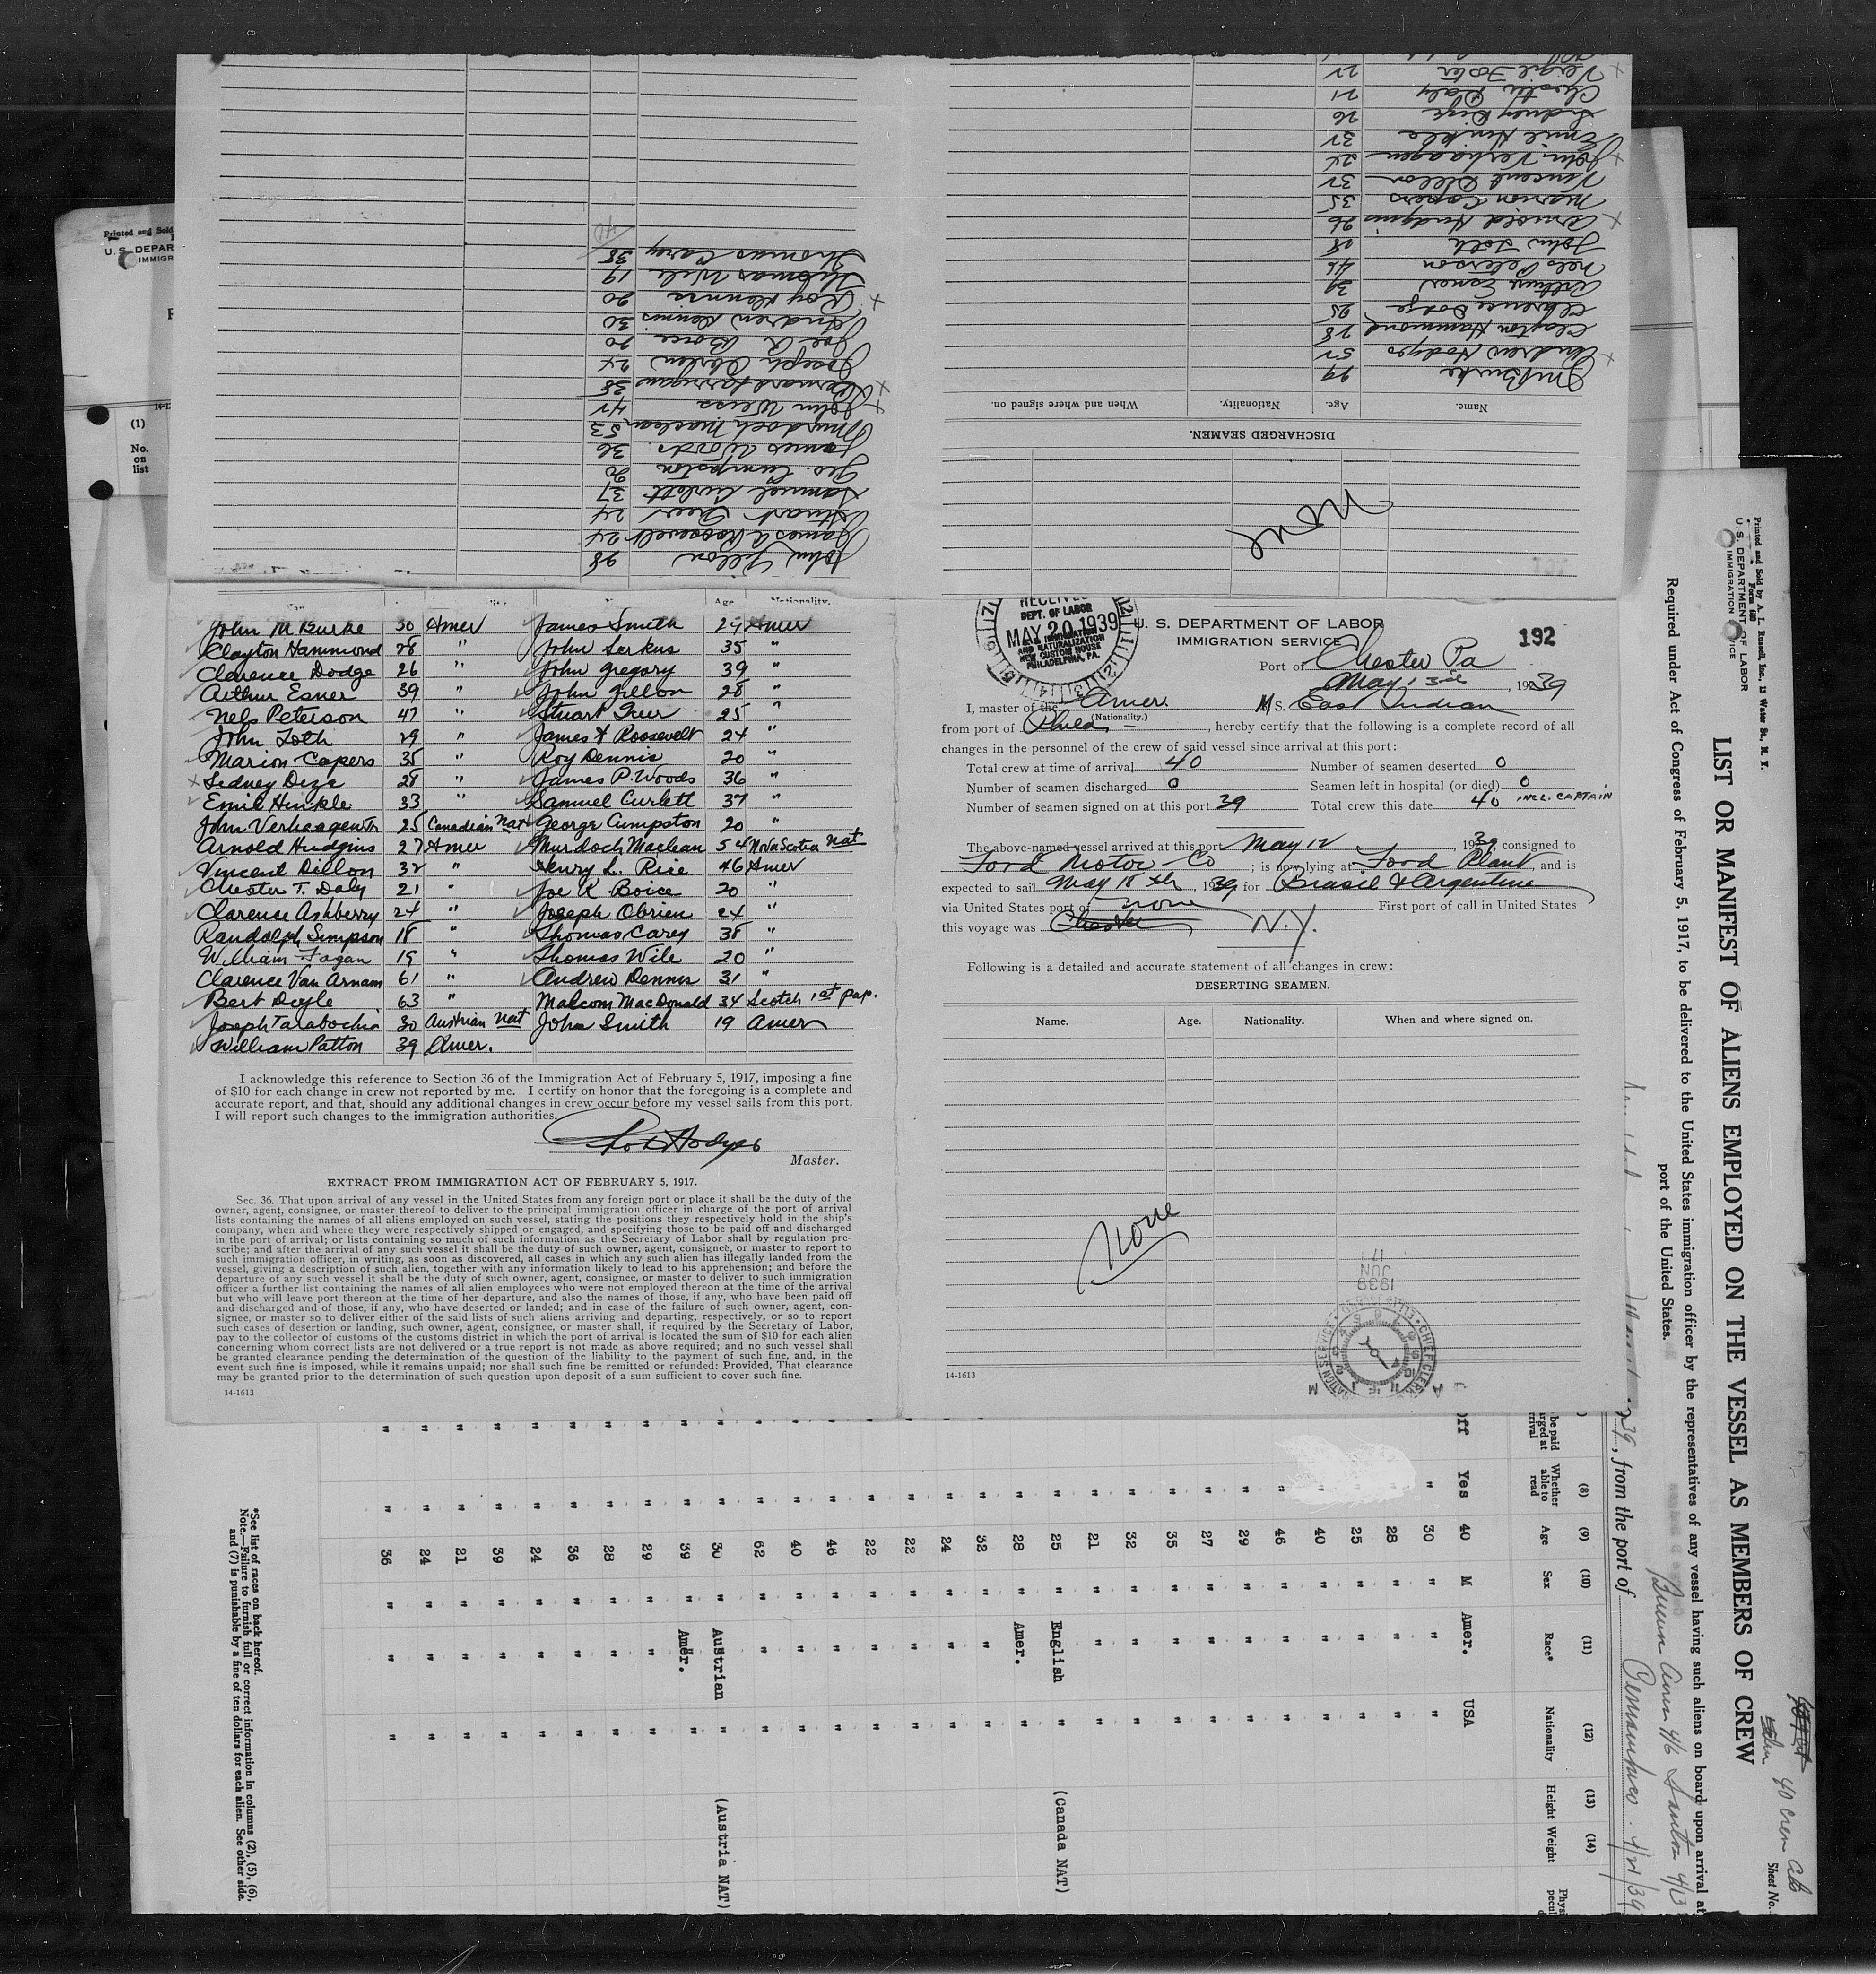 John Gillon 28
James A Roosevelt 24
Stuart Greer 24
Samuel Curlett 37
Geo. Cumpston 20
James Woods. 36
Murdoch Maclean 53
John Weiss 42
Joseph Obrien 24
Joe R Boice 20
Andrew Dennis 30
Roy Dennis 20
Thomas Wile 19
Thomas Carey 38
None
DISCHARGED SEAMEN.
Name. Age. Nationality. When and where signed on.
Jm Burke 29
Andrew Hodges 52
Clayton Hammond 28
Clarence Dodge 25
Arthur Esner 39
Nels Peterson 46
John Toth 28
Arnold Hudgins 26
Marion Capers 35
Vincent Dillon 32
John Verhaagen 24
Emil Hinkle 32
Sidney Dize 26
Chester Daly 21
Virgil Foster 22
Age Nationality.
John M Burke 30 Amer James Smith 29 Amer
Clayton Hammond 28 " John Serkus 35 "
Clarence Dodge 26 " John Gregory 39 "
Arthur Esner 39 " John Gillon 28 "
Nels Peterson 47 " Stuart Greer 25 "
John Toth 29 " James A Roosevelt 24 "
Marion Capers 35 " Roy Dennis 20 "
Sidney Dize 28 " James P. Woods 36 "
Emil Hinkle 33 " Samuel Curlett 37 "
John Verhaagen Jr 25 Canadian Nat George Cumpston 20 "
Arnold Hudgins 27 Amer Murdoch Maclean 54 Nova Scotia Nat
Vincent Dillon 32 " Henry L. Rice 46 Amer
Chester T. Daly 21 " Joe R. Boice 20 "
Clarence Ashberry 24 " Joseph Obrien 24 "
Randolph Simpson 18 " Thomas Carey 38 "
William Fagan 19 " Thomas Wile 20 "
Clarence Van Arnam 61 " Andrew Dennis 31 "
Bert Doyle 63 " Malcom MacDonald 34 Scotch 1st pap.
Joseph Tarabochia 30 Austrian Nat John Smith 19 Amer
William Patton 39 Amer.
I acknowledge this reference to Section 36 of the Immigration Act of February 5, 1917, imposing a fine
of $10 for each change in crew not reported by me. I certify on honor that the foregoing is a complete and
accurate report, and that, should any additional changes in crew occur before my vessel sails from this port,
I will report such changes to the immigration authorities.
Robt Hodges
Master.
EXTRACT FROM IMMIGRATION ACT OF FEBRUARY 5, 1917.
Sec. 36. That upon arrival of any vessel in the United States from any foreign port or place it shall be the duty of the
owner, agent, consignee, or master thereof to deliver to the principal immigration officer in charge of the port of arrival
lists containing the names of all aliens employed on such vessel, stating the positions they respectively hold in the ship's
company, when and where they were respectively shipped or engaged, and specifying those to be paid off and discharged
in the port of arrival; or lists containing so much of such information as the Secretary of Labor shall by regulation pre-
scribe; and after the arrival of any such vessel it shall be the duty of such owner, agent, consignee, or master to report to
such immigration officer, in writing, as soon as discovered, all cases in which any such alien has illegally landed from the
vessel, giving a description of such alien, together with any information likely to lead to his apprehension; and before the
departure of any such vessel it shall be the duty of such owner, agent, consignee, or master to deliver to such immigration
officer a further list containing the names of all alien employees who were not employed thereon at the time of the arrival
but who will leave port thereon at the time of her departure, and also the names of those, if any, who have been paid off
and discharged and of those, if any, who have deserted or landed; and in case of the failure of such owner, agent, con-
signee, or master so to deliver either of the said lists of such aliens arriving and departing, respectively, or so to report
such cases of desertion or landing, such owner, agent, consignee, or master shall, if required by the Secretary of Labor,
pay to the collector of customs of the customs district in which the port of arrival is located the sum of $10 for each alien
concerning whom correct lists are not delivered or a true report is not made as above required; and no such vessel shall
be granted clearance pending the determination of the question of the liability to the payment of such fine, and, in the
event such fine is imposed, while it remains unpaid; nor shall such fine be remitted or refunded: Provided, That clearance
may be granted prior to the determination of such question upon deposit of a sum sufficient to cover such fine.
14-1613
RECEIVED
DEPT. OF LABOR
MAY 20 1939
IMMIGRATION
AND NATURALIZATION
NEW CUSTOM HOUSE
PHILADELPHIA, PA.
U. S. DEPARTMENT OF LABOR
IMMIGRATION SERVICE
192
Port of Chester Pa
May 13th, 1939
I, master of the Amer. M S. East Indian
(Nationality.)
from port of Phila, hereby certify that the following is a complete record of all
changes in the personnel of the crew of said vessel since arrival at this port:
Total crew at time of arrival 40 Number of seamen deserted 0
Number of seamen discharged 0 Seamen left in hospital (or died) 0
Number of seamen signed on at this port 39 Total crew this date 40 INCL. CAPTAIN
The above-named vessel arrived at this port May 12, 1939, consigned to
Ford Motor Co; is now lying at Ford Plant, and is
expected to sail May 18th, 1939 for Brasil & Argentine
via United States port of none First port of call in United States
this voyage was Chester N.Y.
Following is a detailed and accurate statement of all changes in crew:
DESERTING SEAMEN.
Name. Age. Nationality. When and where signed on.
None
1939
JUN
17
14-1613
Printed and Sold
U. S. DEPAR
IMMIGR
14-1
(1)
No.
on
list
Printed and Sold by A. L. Russell, Inc., 13 Water St., N. Y.
Form 680
U. S. DEPARTMENT OF LABOR
IMMIGRATION SERVICE
LIST OR MANIFEST OF ALIENS EMPLOYED ON THE VESSEL AS MEMBERS OF CREW
Required under Act of Congress of February 5, 1917, to be delivered to the United States immigration officer by the representatives of any vessel having such aliens on board upon arrival at
port of the United States.
Sheet No.
40 crew
39, from the port of Pernambuco 4/21/39
Buenos Aires 4/6 Santos 4/13
be paid
arged at
rrival
(8) Whether able to read
(9) Age
(10) Sex
(11) Race*
(12) Nationality
(13) Height
(14) Weight
Off Yes 40 M Amer. USA
" 30 " " "
" 28 " " "
" 25 " " "
" 40 " " "
" 46 " " "
" 29 " " "
" 27 " " "
" 35 " " "
" 32 " " "
" 21 " " "
" 25 " English " (Canada NAT)
" 28 " Amer. "
" 32 " " "
" 24 " " "
" 22 " " "
" 22 " " "
" 46 " " "
" 40 " " "
" 62 " " "
" 30 " Austrian " (Austria NAT)
" 39 " Amer. "
" 29 " " "
" 28 " " "
" 36 " " "
" 24 " " "
" 39 " " "
" 21 " " "
" 24 " " "
" 36 " " "
*See list of races on back hereof.
Note.—Failure to furnish full or correct information in columns (2), (5), (6),
and (7) is punishable by a fine of ten dollars for each alien. See other side.